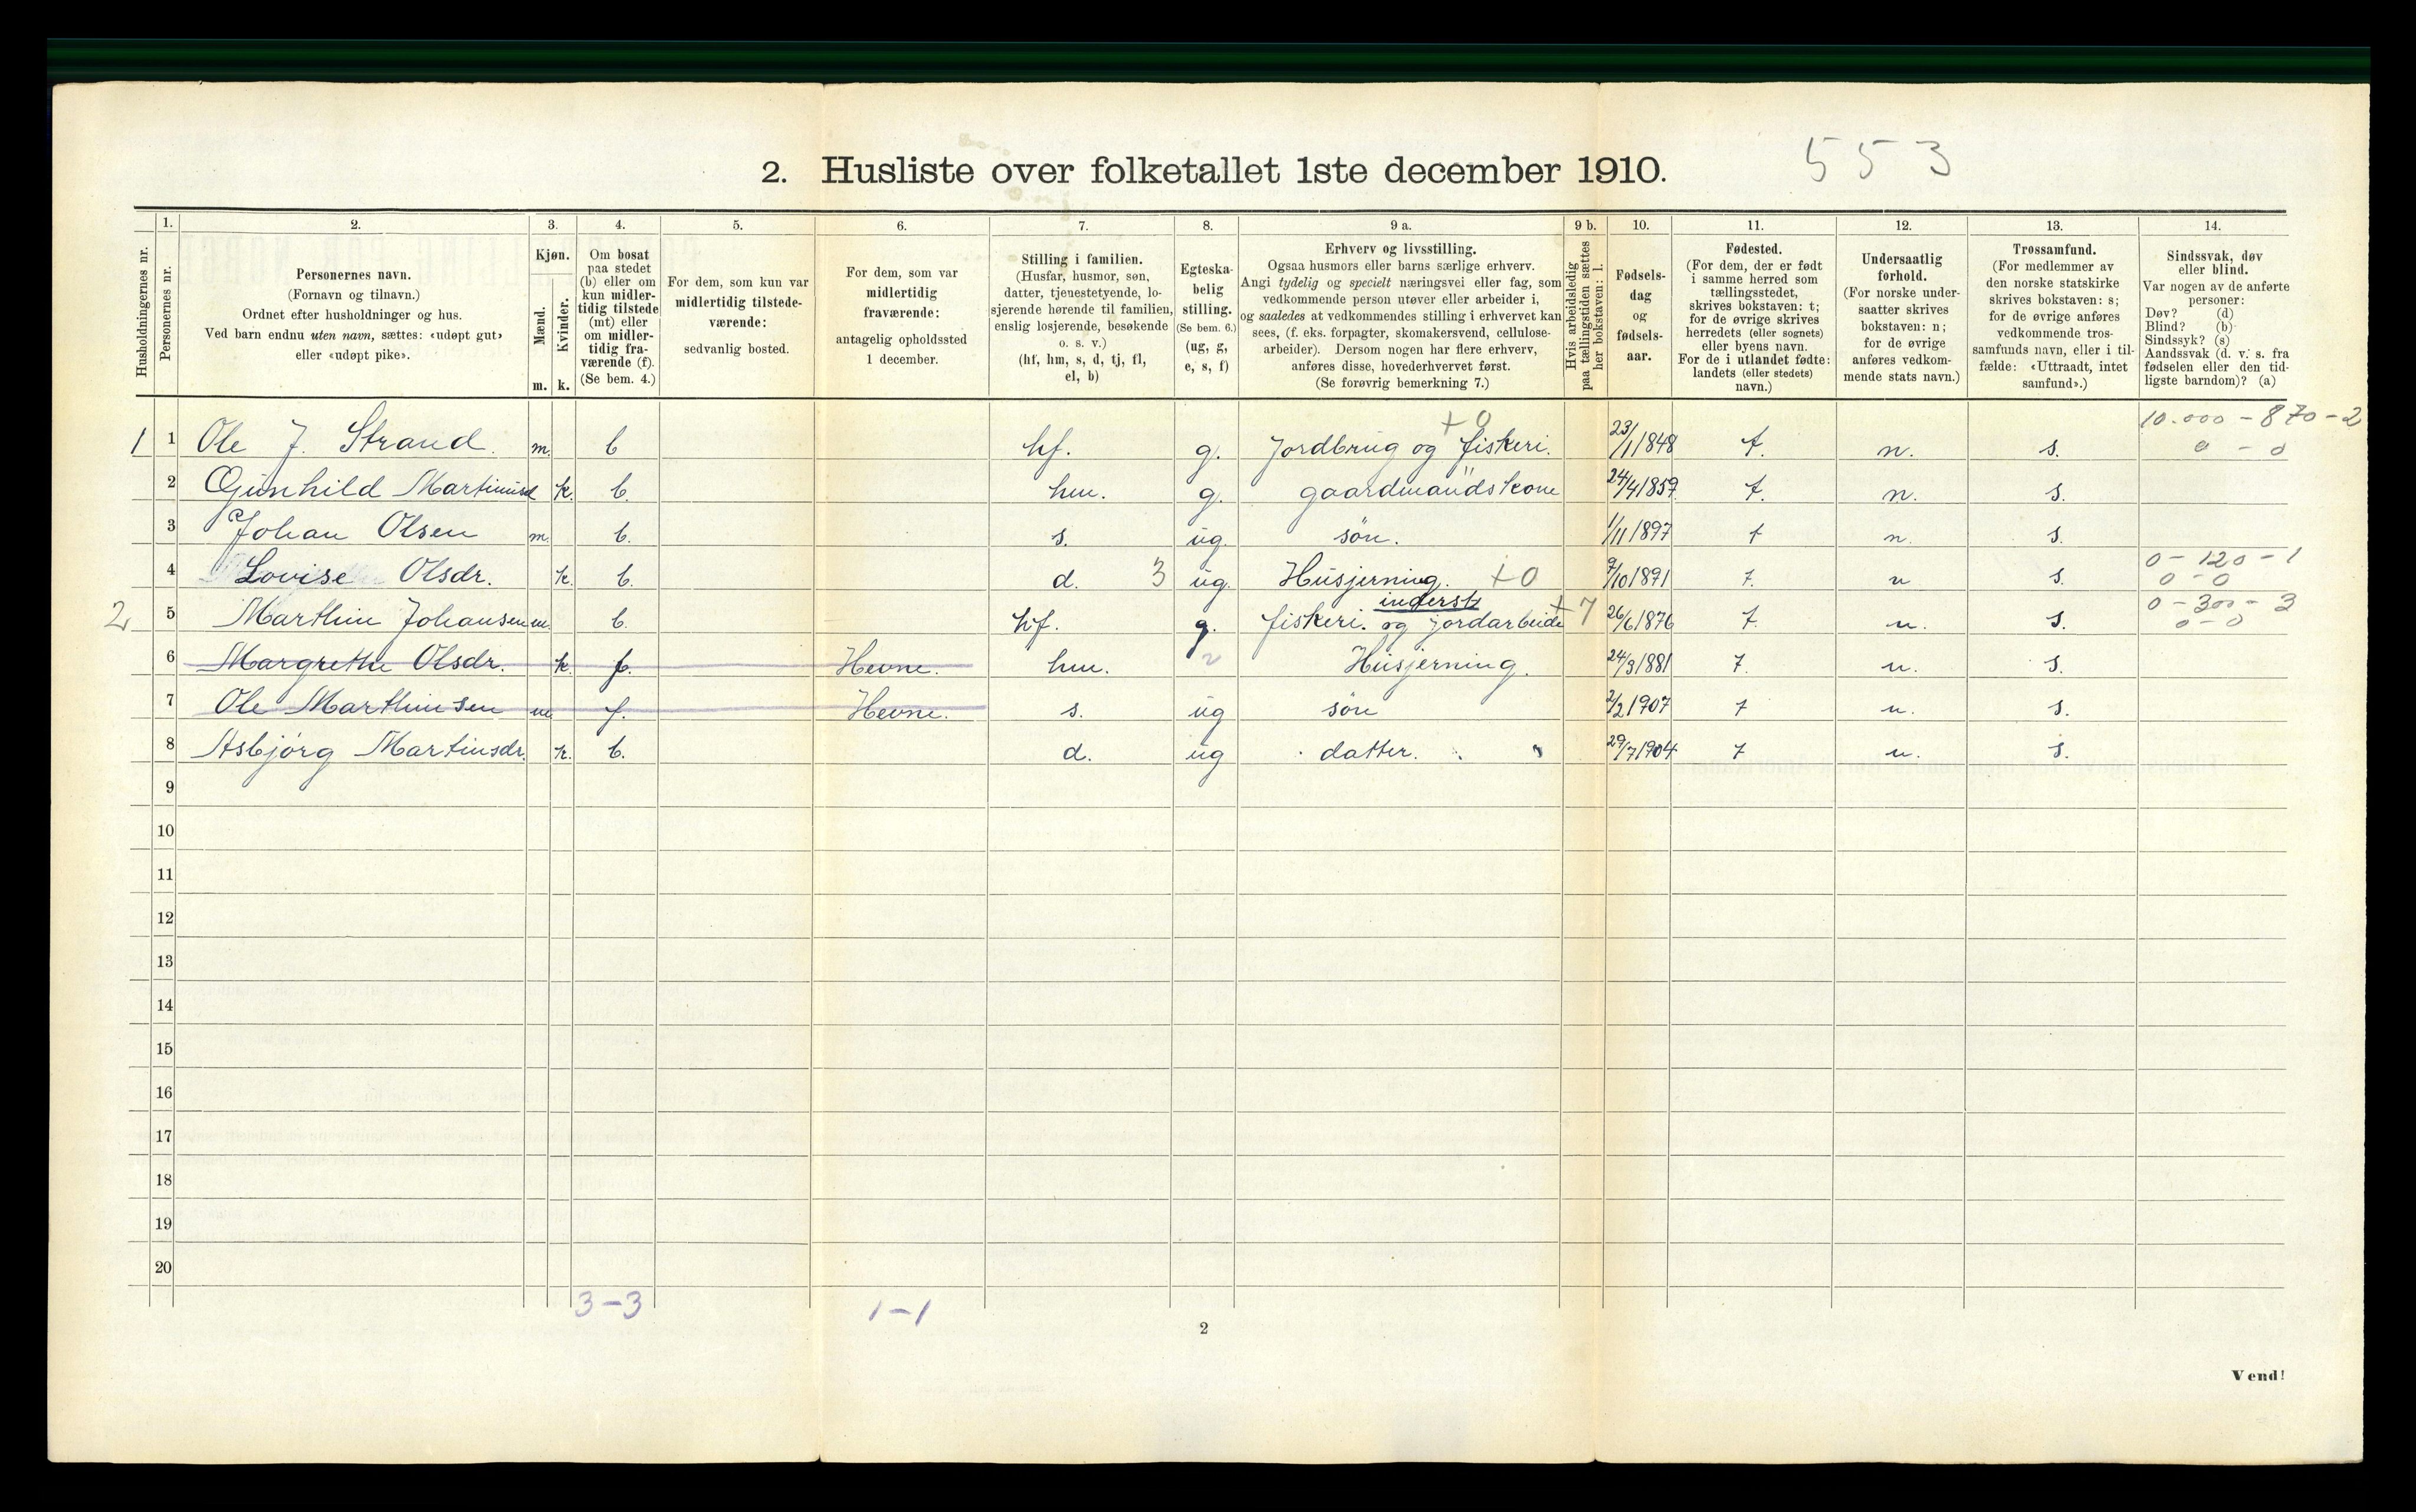 2. Husliste over folketallet 1ste december 1910.
553
Husholdningernes nr.
1. Personernes nr.
2. Personernes navn.
(Fornavn og tilnavn.)
Ordnet efter husholdninger og hus.
Ved barn endnu uten navn, sættes: «udøpt gut»
eller «udøpt pike».
3. Kjøn.
Mænd. Kvinder.
m. k.
4. Om bosat
paa stedet
(b) eller om
kun midler-
tidig tilstede
(mt) eller
om midler-
tidig fra-
værende (f).
(Se bem. 4.)
5. For dem, som kun var
midlertidig tilstede-
værende:
sedvanlig bosted.
6. For dem, som var
midlertidig
fraværende:
antagelig opholdssted
1 december.
7. Stilling i familien.
(Husfar, husmor, søn,
datter, tjenestetyende, lo-
sjerende hørende til familien,
enslig losjerende, besøkende
o. s. v.)
(hf, hm, s, d, tj, fl,
el, b)
8. Egteska-
belig
stilling.
(Se bem. 6.)
(ug, g,
e, s, f)
9 a. Erhverv og livsstilling.
Ogsaa husmors eller barns særlige erhverv.
Angi tydelig og specielt næringsvei eller fag, som
vedkommende person utøver eller arbeider i,
og saaledes at vedkommendes stilling i erhvervet kan
sees, (f. eks. forpagter, skomakersvend, cellulose-
arbeider). Dersom nogen har flere erhverv,
anføres disse, hovederhvervet først.
(Se forøvrig bemerkning 7.)
9 b. Hvis arbeidsledig
paa tællingstiden sættes
her bokstaven: l.
10. Fødsels-
dag
og
fødsels-
aar.
11. Fødested.
(For dem, der er født
i samme herred som
tællingsstedet,
skrives bokstaven: t;
for de øvrige skrives
herredets (eller sognets)
eller byens navn.
For de i utlandet fødte:
landets (eller stedets)
navn.)
12. Undersaatlig
forhold.
(For norske under-
saatter skrives
bokstaven: n;
for de øvrige
anføres vedkom-
mende stats navn.)
13. Trossamfund.
(For medlemmer av
den norske statskirke
skrives bokstaven: s;
for de øvrige anføres
vedkommende tros-
samfunds navn, eller i til-
fælde: «Uttraadt, intet
samfund».)
14. Sindssvak, døv
eller blind.
Var nogen av de anførte
personer:
Døv? (d)
Blind? (b)
Sindssyk? (s)
Aandssvak (d. v. s. fra
fødselen eller den tid-
ligste barndom)? (a)
+0 10.000 - 870 - 2
1 1 Ole J. Strand. m. b hf. g. Jordbrug og fiskeri. 23/1 1848 t. n. s. 0 - 0
2 Gunhild Martinusd k. b. hm. g. gaardmandskone 24/4 1857 t. n. s.
3 Johan Olsen m. b. s. ug. søn. 1/11 1897 t n. s.
0 - 120 - 1
4 Lovise Olsdr. k. b. d. 3 ug. Husjerning. +0 9/10 1891 t. n s. 0 - 0
inderst 0 - 300 - 3
2 5 Marthin Johansen m. b. hf. g. fiskeri. og jordarbeide +7 26/6 1876 t. n. s. 0 - 0
6 Margrethe Olsdr. k. f. Hevne. hm. Husjerning. 24/9 1881 t. n. s.
7 Ole Marthinsen m f. Hevne. s. ug søn 2/2 1907 t n. s.
8 Asbjørg Martinsdr. k. b. d. ug datter. 29/7 1904 t n. s.
9
10
11
12
13
14
15
16
17
18
19
20
3-3 1-1
2
Vend!